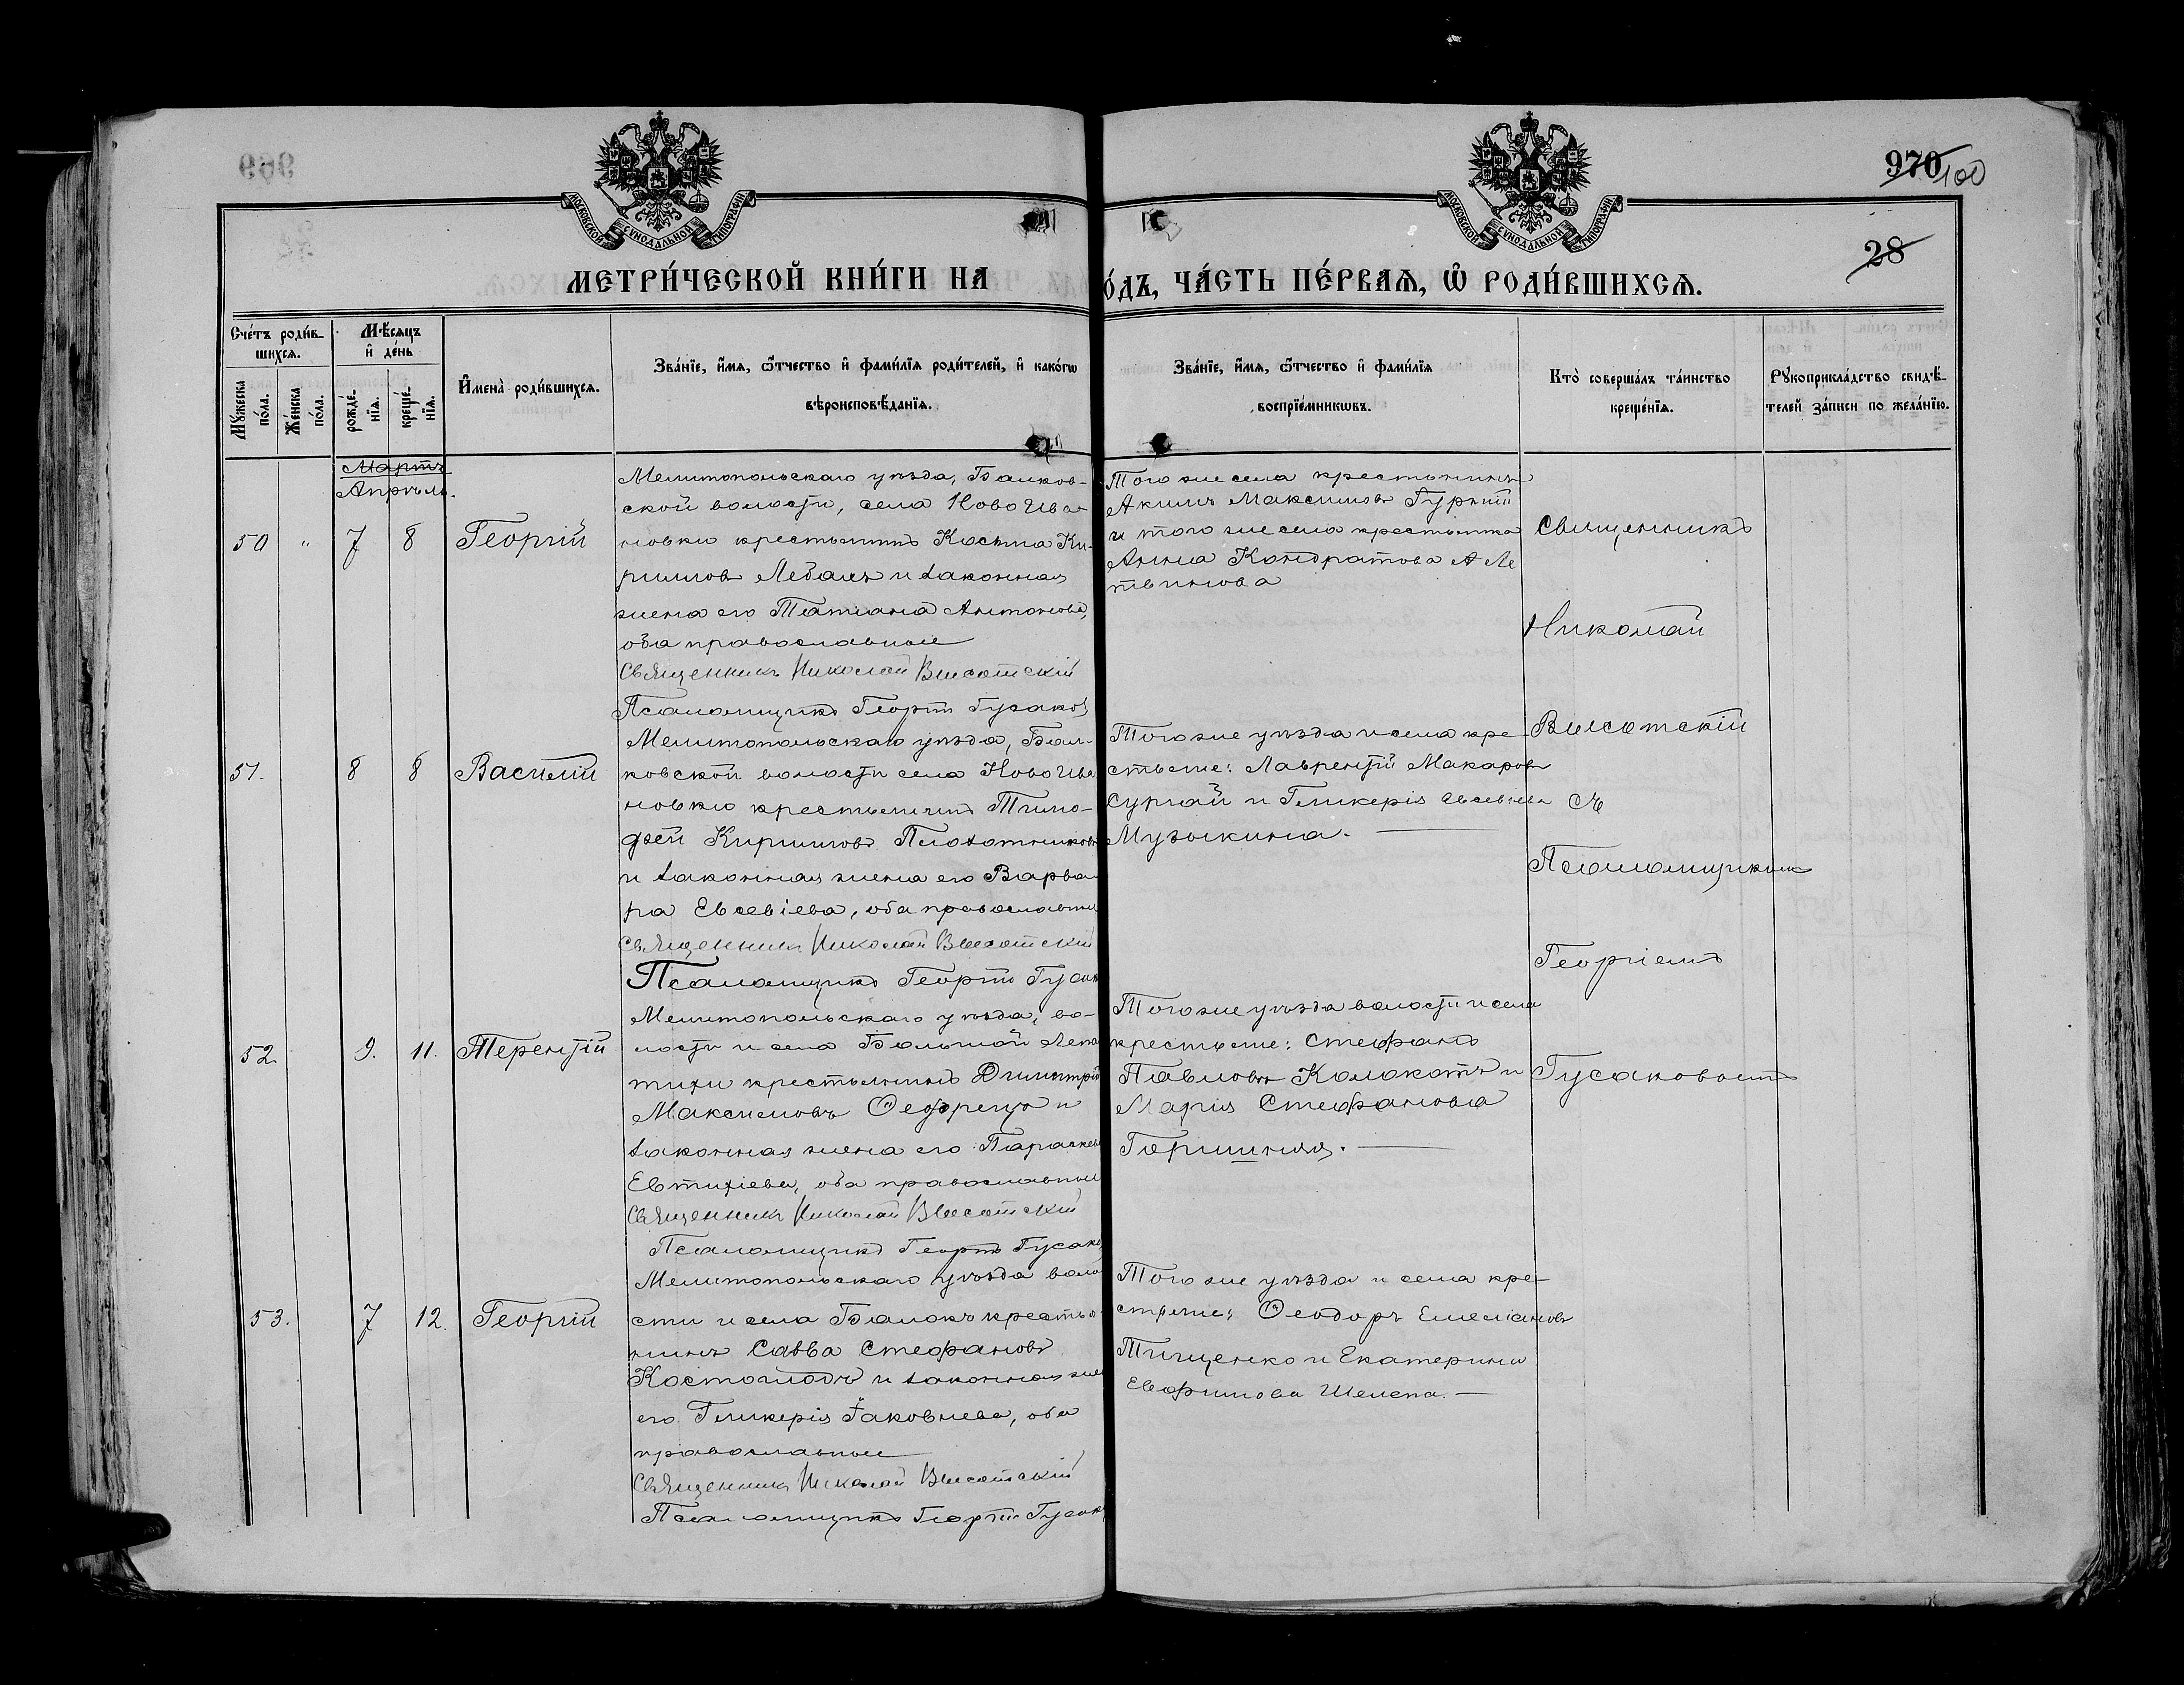 969
970 100
28
МОСКОВСКОЙ СѴНОДАЛЬНОЙ ТИПОГРАФІИ
МОСКОВСКОЙ СѴНОДАЛЬНОЙ ТИПОГРАФІИ
МЕТРИ́ЧЕСКОЙ КНИ́ГИ НА
О́ДЪ, ЧА́СТЬ ПЕ́РВАѦ, Ѿ РОДИ́ВШИХСѦ.
Сче́тъ роди́в-
шихсѧ.
Мѣ́сѧцъ
и҆ де́нь
Мꙋжеска по́ла.
Же́нска по́ла.
рожде́-
нїѧ.
креще́-
нїѧ.
И҆мена̀ роди́вшихсѧ.
Зва́нїе, и҆́мѧ, ѻ҆́тчество и҆ фами́лїѧ роди́телей, и҆ како́гѡ
вѣроисповѣ́данїѧ.
Зва́нїе, и҆́мѧ, ѻ҆́тчество и҆ фами́лїѧ
воспрїе́мникѡвъ.
Кто̀ соверша́лъ та́инство
креще́нїѧ.
Рꙋкоприкла́дство свидѣ́-
телей за́писи по жела́нїю.
Мартъ
Апрѣль.
50 " 7 8 Георгій
Мелитопольскаго уѣзда, Балков-
ской волости, села Ново Ива-
новки крестьянинъ Косьма Ки-
риловъ Лебедь и законная
жена его Татіана Антонова,
оба православные
Священникъ Николай Высотскій
Псаломщикъ Георгій Гусаковъ
Того же села крестьянинъ
Акимъ Максимовъ Гуркій
и того же села крестьянка
Анна Кондратова А Ле
твинова
51. 8 8 Василій
Мелитопольскаго уѣзда, Бал-
ковской волости села Ново Ива
новки крестьянинъ Тимо-
фей Кириловъ Плохотниковъ
и законная жена его Варва-
ра Евсевіева, оба православные
Священникъ Николай Высотскій
Псаломщикъ Георгій Гусак
Того же уѣзда и села кре-
стьяне: Лаврентій Макаровъ
Сургай и Гликерія Евсевіева
Музыкина.
52. 9. 11. Терентій
Мелитопольскаго уѣзда, во-
лости и села Большой Лепа
тихи крестьянинъ Димитрій
Максимовъ
законная жена его Параскева
Евтихіева, оба православные
Священникъ Николай Высотскій
Псаломщикъ Георгій Гусако
Того же уѣзда волости и села
крестьяне: Стефанъ
Павловъ Колокотъ и
Марія Стефанова
53. 7 12. Георгій
Мелитопольскаго уѣзда воло
сти и села Балокъ крестья-
нинъ Савва Стефановъ
и законная жена
его Гликерія Іаковлева, оба
православные
Священникъ Николай Высотскій
Псаломщикъ Георгій Гусак
Того же уѣзда и села кре-
стьяне: Ѳеодоръ Емеліановъ
Тищенко и Екатерина
Евфимова Шелепа.
Священникъ
Николай
Высотскій
съ
Псаломщикомъ
Георгіемъ
Гусаковымъ